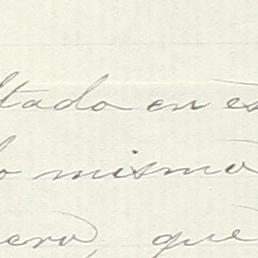 ltado en es
o mismo
ero, que